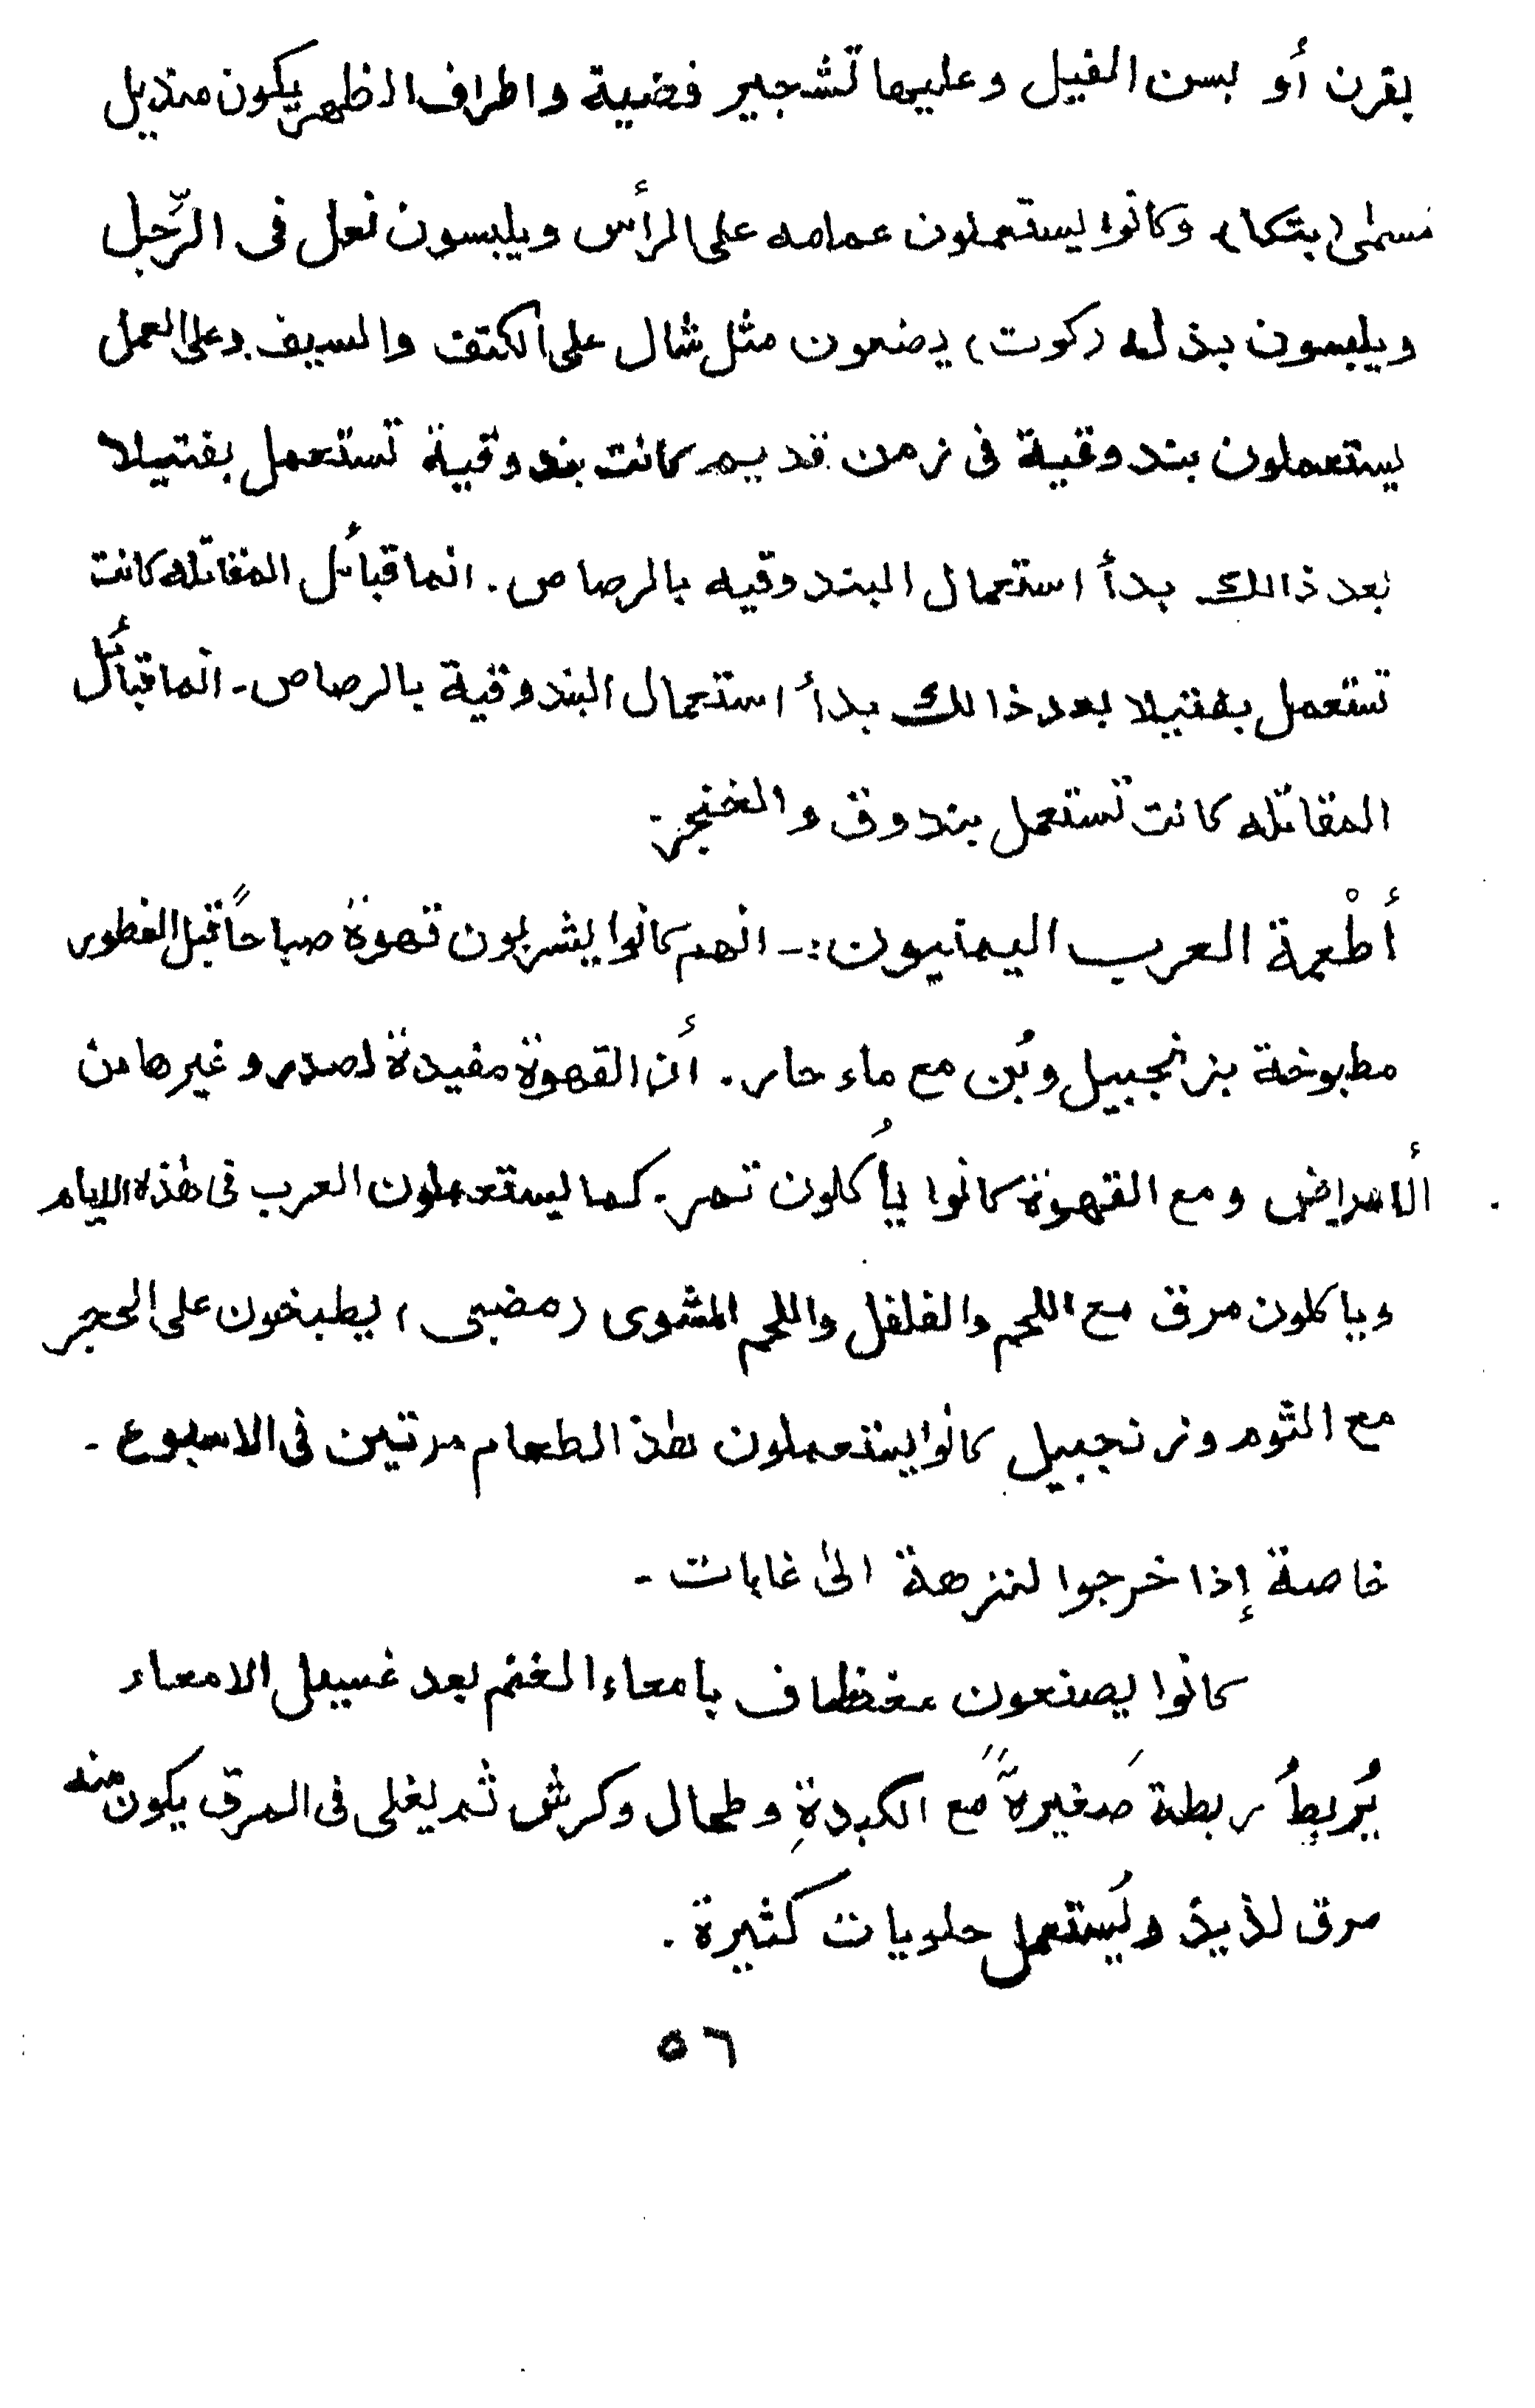 بقرن أو بسن الفيل وعليها تشجير فضية واطراف الظهر يكون منديل
مسمى (بتكا) وكانوا يستعملون عمامه على الرأس ويلبسون نعل فى الرّجل
ويلبسون بذله (كوت) يضعون مثل شال على الكتف والسيف. وعلى العمل
يستعملون بندوقية فى زمن قديم كانت بندوقية تستعمل بفتيلا
بعد ذالك بدأ استعمال البندوقيه بالرصاص. انما قبائل المقاتله كانت
تستعمل بفتيلا بعد ذالك بدأ استعمال البندوقية بالرصاص - انما قبائل
المقاتله كانت تستعمل بندوق والخنجر.
أطْعمة العرب اليمنيون :- انهم كانوا يشربون قهوة صباحاً قبل الفطور
مطبوخة بزنجبيل وبُن مع ماء حار. أن القهوة مفيدة لصدر وغيرها من
ألامراض ومع القهوة كانوا يأُكلون تمر. كما يستعملون العرب فى هذه الايام
وياكلون مرق مع اللحم والفلفل واللحم المشوى (مضبى) يطبخون على الحجر
مع الثوم وزنجبيل كانوا يستعملون هذ الطعام مرتين فى الاسبوع -
خاصة إذا خرجوا لنزهة الى غابات -
كانوا يصنعون بامعاء الغنم بعد غسيل الامعاء
يُربطُ ربطة صَغيرةً مَع الكبدةِ وطحال وكرش ثم يغلى فى المرق يكون منه
مرق لذيذ ويُستعمل حلويات كثيرة.
٥٦